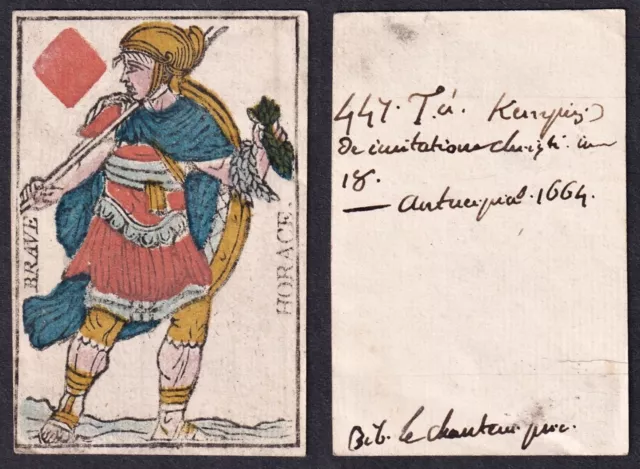 BRAVE
HORACE.
447. T. á. Kempis
De imitatione christi in
18.
— Antuerpiae. 1664.
Bib. le